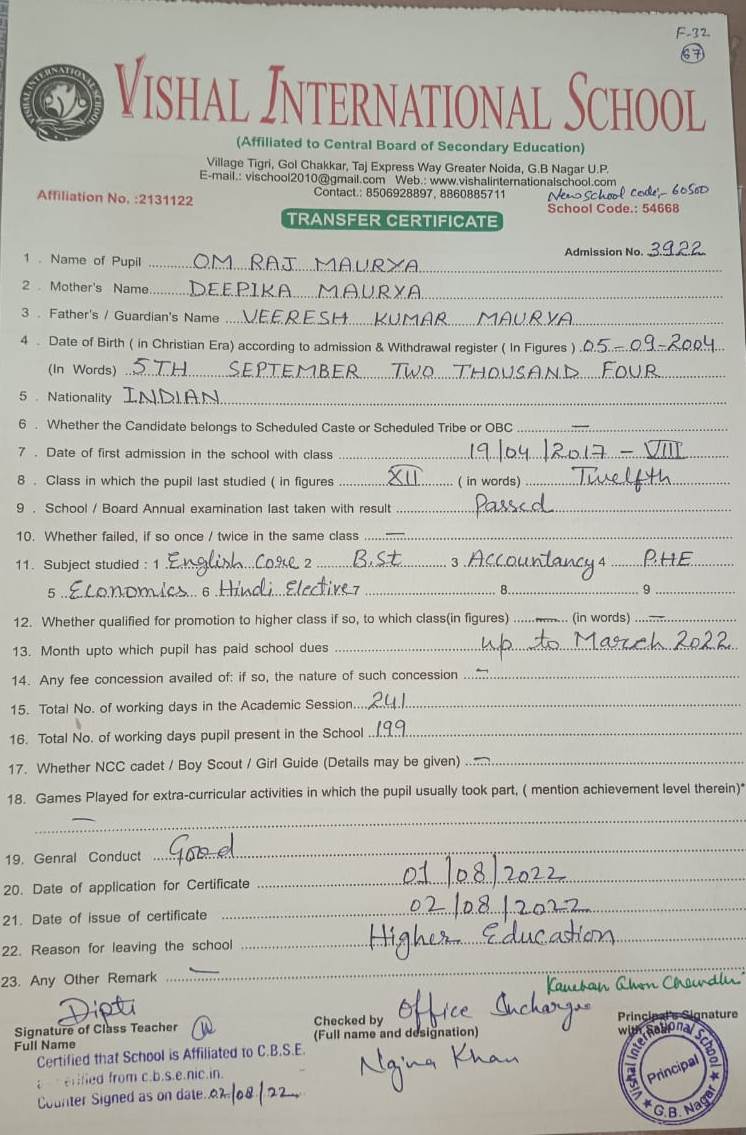 F-32
67
VISHAL INTERNATIONAL SCHOOL
VISHAL INTERNATIONAL SCHOOL
(Affiliated to Central Board of Secondary Education)
Village Tigri, Gol Chakkar, Taj Express Way Greater Noida, G.B Nagar U.P.
E-mail.: vischool2010@gmail.com Web.: www.vishalinternationalschool.com
Contact.: 8506928897, 8860885711
New School Code:- 60500
Affiliation No. :2131122
School Code.: 54668
TRANSFER CERTIFICATE
Admission No. 3922
1 . Name of Pupil OM RAJ MAURYA
2 . Mother's Name DEEPIKA MAURYA
3 . Father's / Guardian's Name VEERESH KUMAR MAURYA
4 . Date of Birth ( in Christian Era) according to admission & Withdrawal register ( In Figures ) 05-09-2004
(In Words) 5TH SEPTEMBER TWO THOUSAND FOUR
5 . Nationality INDIAN
6 . Whether the Candidate belongs to Scheduled Caste or Scheduled Tribe or OBC —
7 . Date of first admission in the school with class 19/04/2017 - VIII
8 . Class in which the pupil last studied ( in figures XII ( in words) Twelfth
9 . School / Board Annual examination last taken with result Passed
10. Whether failed, if so once / twice in the same class —
11. Subject studied : 1 English Core 2 B.St 3 Accountancy 4 P.HE
5 Economics 6 Hindi Elective 7 8 9
12. Whether qualified for promotion to higher class if so, to which class(in figures) — (in words) —
13. Month upto which pupil has paid school dues up to March 2022
14. Any fee concession availed of: if so, the nature of such concession —
15. Total No. of working days in the Academic Session 241
16. Total No. of working days pupil present in the School 199
17. Whether NCC cadet / Boy Scout / Girl Guide (Details may be given) —
18. Games Played for extra-curricular activities in which the pupil usually took part, ( mention achievement level therein)*
—
19. Genral Conduct Good
20. Date of application for Certificate 01/08/2022
21. Date of issue of certificate 02/08/2022
22. Reason for leaving the school Higher Education
23. Any Other Remark —
Dipti
Signature of Class Teacher
Full Name
Checked by Office Incharge
(Full name and designation)
Nagina Khan
Principal's Signature
with
Certified that School is Affiliated to C.B.S.E.
from c.b.s.e.nic.in.
Counter Signed as on date 02/08/22
Vishal International School
Principal
G.B. Nagar